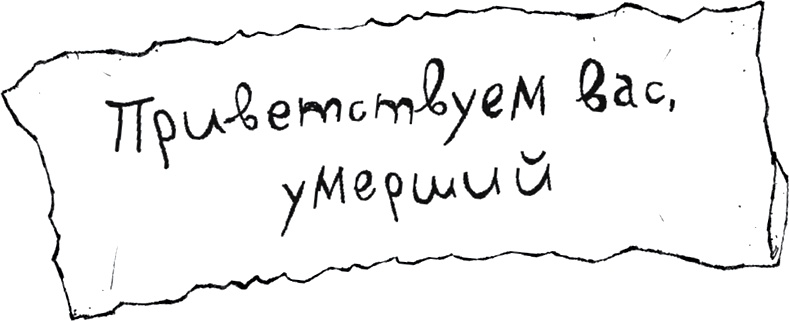 Приветствуем вас,
умерший